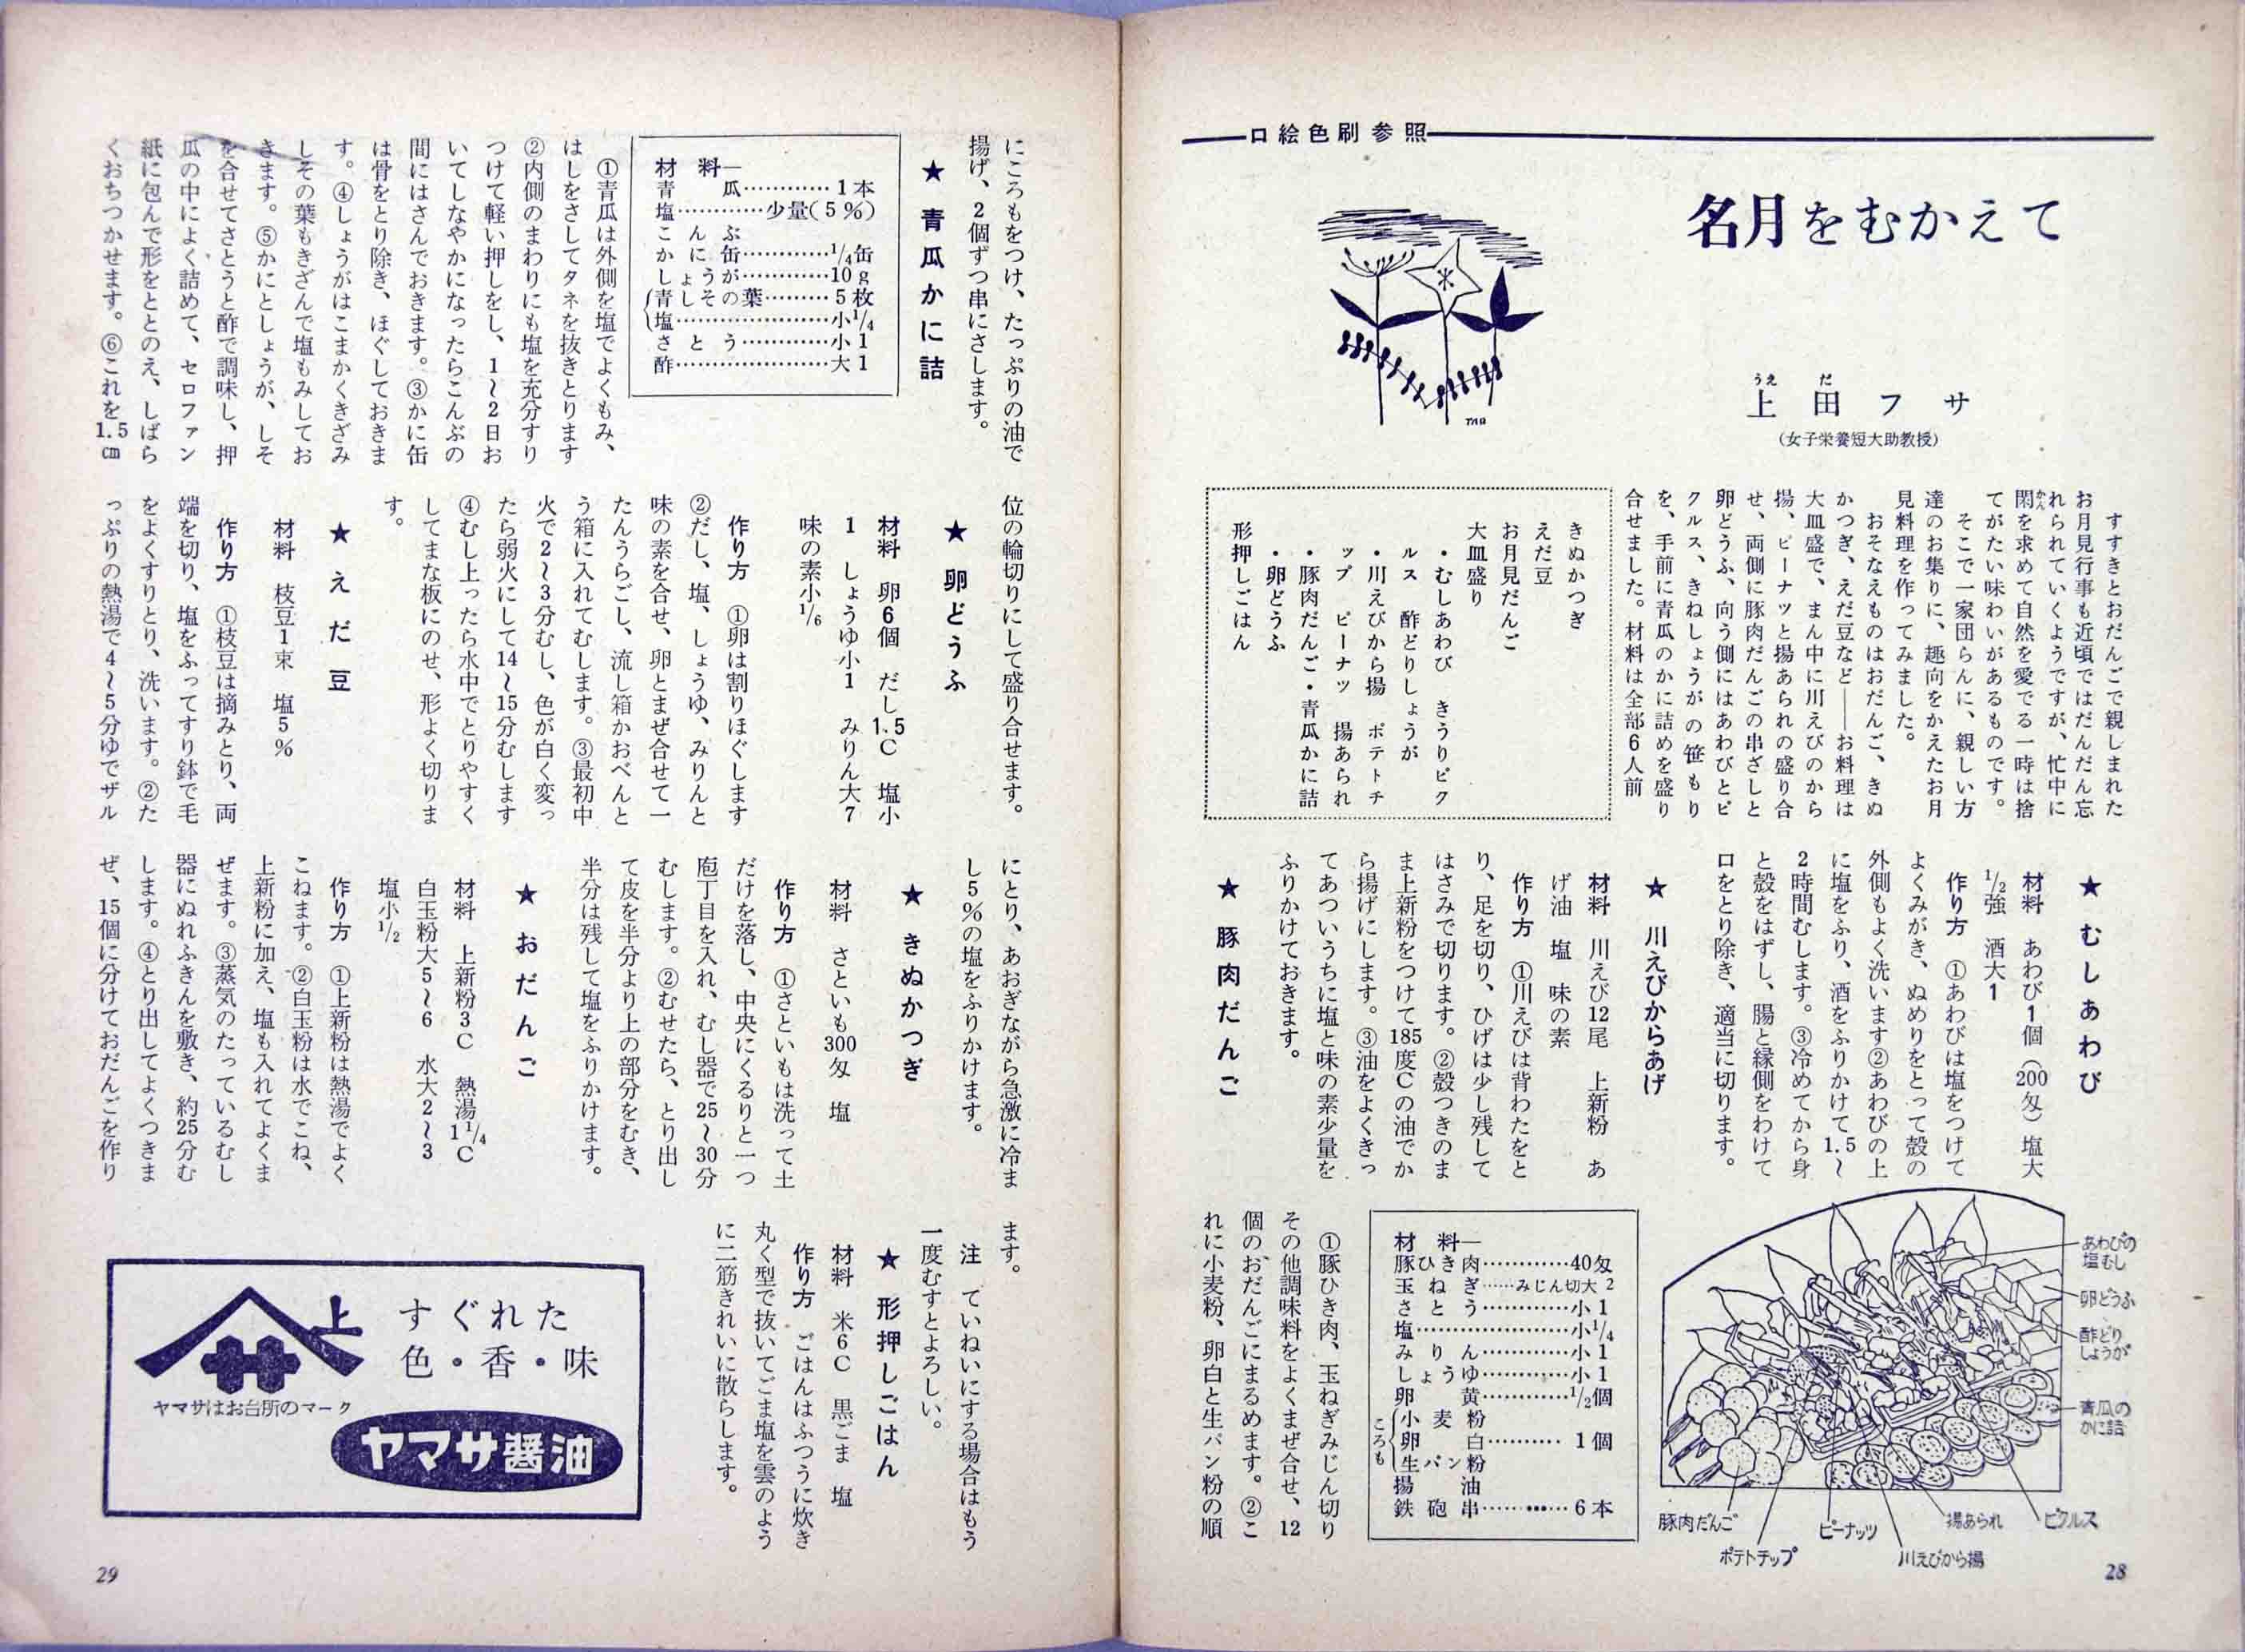 口絵色刷参照
名月をむかえて
上田フサ
うえだ
(女子栄養短大助教授)
すすきとおだんごで親しまれた
お月見行事も近頃ではだんだん忘
れられていくようですが、忙中に
閑を求めて自然を愛でる一時は捨
かん
てがたい味わいがあるものです。
そこで一家団らんに、親しい方
達のお集りに、趣向をかえたお月
見料理を作ってみました。
おそなえものはおだんご、きぬ
かつぎ、えだ豆など――お料理は
大皿盛で、まん中に川えびのから
揚、ピーナッと揚あられの盛り合
せ、両側に豚肉だんごの串ざしと
卵どうふ、向う側にはあわびとピ
クルス、きねしょうがの笹もり
を、手前に青瓜のかに詰めを盛り
合せました。材料は全部6人前
きぬかつぎ
えだ豆
お月見だんご
大皿盛り
・むしあわび きうりピク
ルス 酢どりしょうが
・川えびから揚 ポテトチ
ップ ピーナッ 揚あられ
・豚肉だんご・青瓜かに詰
・卵どうふ
形押しごはん
★ むしあわび
材料 あわび1個(200匁)塩大
1/2強 酒大1
作り方 ①あわびは塩をつけて
よくみがき、ぬめりをとって殻の
外側もよく洗います②あわびの上
に塩をふり、酒をふりかけて1.5~
2時間むします。③冷めてから身
と殻をはずし、腸と縁側をわけて
口をとり除き、適当に切ります。
★ 川えびからあげ
材料 川えび12尾 上新粉 あ
げ油 塩 味の素
作り方 ①川えびは背わたをと
り、足を切り、ひげは少し残して
はさみで切ります。②殻つきのま
ま上新粉をつけて185度Cの油でか
ら揚げにします。③油をよくきっ
てあついうちに塩と味の素少量を
ふりかけておきます。
★ 豚肉だんご
あわびの
塩むし
卵どうふ
酢どり
しょうが
青瓜の
かに詰
ピクルス
揚あられ
川えびから揚
ピーナッツ
ポテトチップ
豚肉だんご
材料―
豚ひき肉…………40匁
玉ねぎ……みじん切大2
さとう…………小1
塩…………………小1/4
みりん…………小1
しょうゆ…………小1
卵黄…………1/2個
ころも
小麦粉
卵白………1個
生パン粉
揚油
鉄砲串…………6本
①豚ひき肉、玉ねぎみじん切り
その他調味料をよくまぜ合せ、12
個のおだんごにまるめます。②こ
れに小麦粉、卵白と生パン粉の順
28
にころもをつけ、たっぷりの油で
揚げ、2個ずつ串にさします。
★ 青瓜かに詰
材料―
青瓜…………1本
塩…………少量(5%)
こんぶ
かに缶…………1/4缶
しょうが…………10g
青しその葉………5枚
塩…………………小1/4
さとう…………小1
酢…………………大1
①青瓜は外側を塩でよくもみ、
はしをさしてタネを抜きとります
②内側のまわりにも塩を充分すり
つけて軽い押しをし、1~2日お
いてしなやかになったらこんぶの
間にはさんでおきます。③かに缶
は骨をとり除き、ほぐしておきま
す。④しょうがはこまかくきざみ
しその葉もきざんで塩もみしてお
きます。⑤かにとしょうが、しそ
を合せてさとうと酢で調味し、押
瓜の中によく詰めて、セロファン
紙に包んで形をととのえ、しばら
くおちつかせます。⑥これを1.5㎝
位の輪切りにして盛り合せます。
★ 卵どうふ
材料 卵6個 だし1.5C 塩小
1 しょうゆ小1 みりん大7
味の素小1/6
作り方 ①卵は割りほぐします
②だし、塩、しょうゆ、みりんと
味の素を合せ、卵とまぜ合せて一
たんうらごし、流し箱かおべんと
う箱に入れてむします。③最初中
火で2~3分むし、色が白く変っ
たら弱火にして14~15分むします
④むし上ったら水中でとりやすく
してまな板にのせ、形よく切りま
す。
★ えだ豆
材料 枝豆1束 塩5%
作り方 ①枝豆は摘みとり、両
端を切り、塩をふってすり鉢で毛
をよくすりとり、洗います。②た
っぷりの熱湯で4~5分ゆでザル
にとり、あおぎながら急激に冷ま
し5%の塩をふりかけます。
★ きぬかつぎ
材料 さといも300匁 塩
作り方 ①さといもは洗って土
だけを落し、中央にくるりと一つ
庖丁目を入れ、むし器で25~30分
むします。②むせたら、とり出し
て皮を半分より上の部分をむき、
半分は残して塩をふりかけます。
★ おだんご
材料 上新粉3C 熱湯1 1/4C
白玉粉大5~6 水大2~3
塩小1/2
作り方 ①上新粉は熱湯でよく
こねます。②白玉粉は水でこね、
上新粉に加え、塩も入れてよくま
ぜます。③蒸気のたっているむし
器にぬれふきんを敷き、約25分む
します。④とり出してよくつきま
ぜ、15個に分けておだんごを作り
ます。
注 ていねいにする場合はもう
一度むすとよろしい。
★ 形押しごはん
材料 米6C 黒ごま 塩
作り方 ごはんはふつうに炊き
丸く型で抜いてごま塩を雲のよう
に二筋きれいに散らします。
上
すぐれた
色・香・味
ヤマサはお台所のマーク
ヤマサ醤油
29